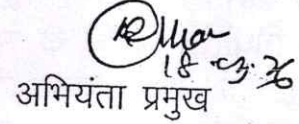 18.03.26
अभियंता प्रमुख